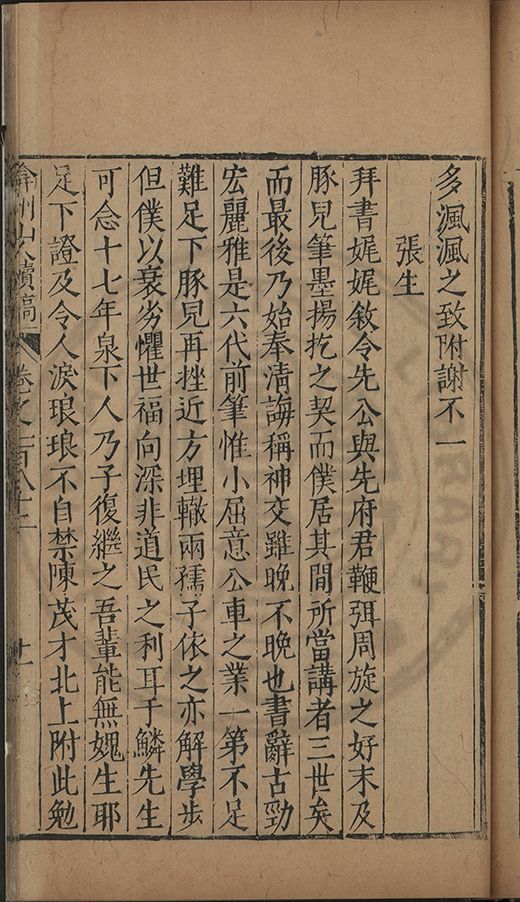 多渢渢之致附謝不一
張生
拜書娓娓敘令先公與先府君鞭弭周旋之好末及
豚兒筆墨揚扢之契而僕居其間所當講者三世矣
而最後乃始奉清誨稱神交雖晚不晚也書辭古勁
宏麗雅是六代前筆惟小屈意公車之業一第不足
難足下豚兒再挫近方埋轍兩孺子依之亦解學步
但僕以衰劣懼世福向深非道民之利耳于鱗先生
可念十七年泉下人乃子復繼之吾輩能無媿生耶
足下證及令人淚琅琅不自禁陳茂才北上附此勉
弇州山人續稿 卷之一百八十二 十一